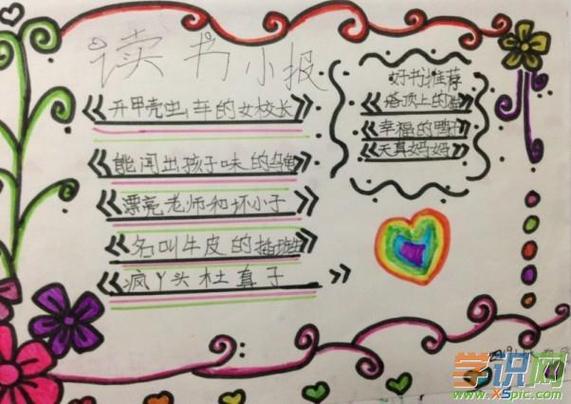 读书小报
《开甲壳虫车的女校长》
《能闻出孩子味的乌龟》
《漂亮老师和坏小子》
《名叫牛皮的插班生》
《疯丫头杜真子》
好书推荐
《塔顶上的
《幸福的鸭子》
《天真妈妈》
学识网
www.XSpic.com